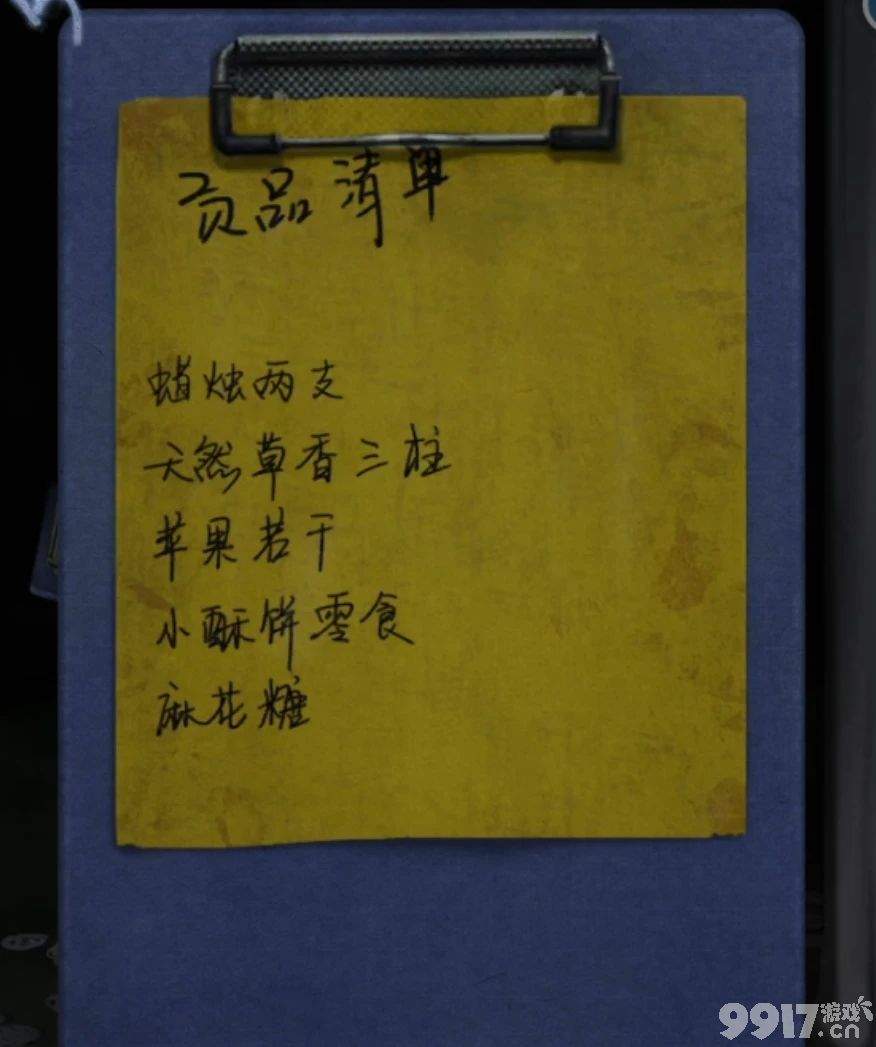 贡品清单
蜡烛两支
天然草香三柱
苹果若干
小酥饼零食
麻花糖
9917游戏
.cn